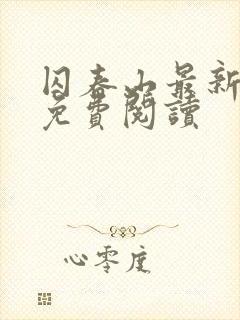 囚春山最新
免費閱讀
心零度